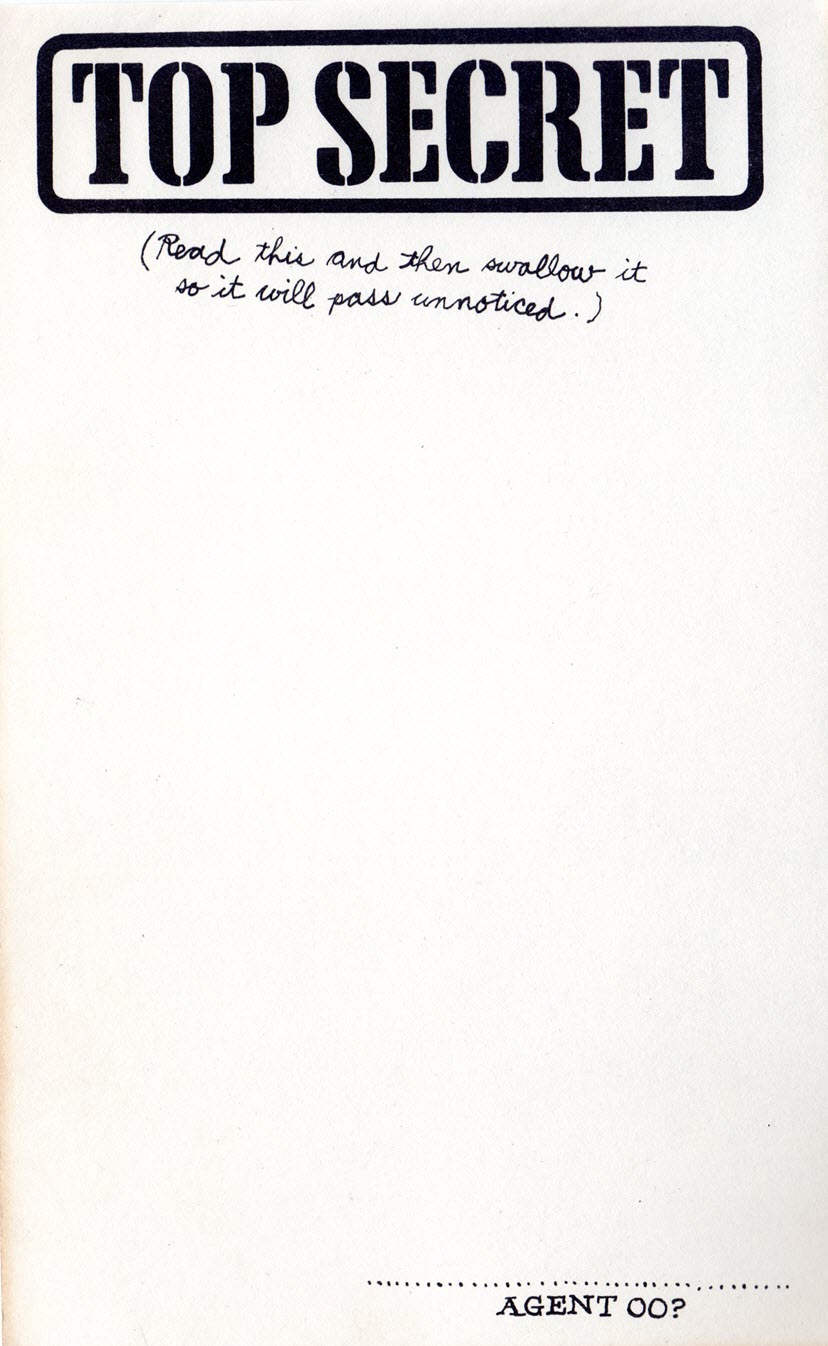 TOP SECRET
(Read this and then swallow it
so it will pass unnoticed.)
AGENT 00?